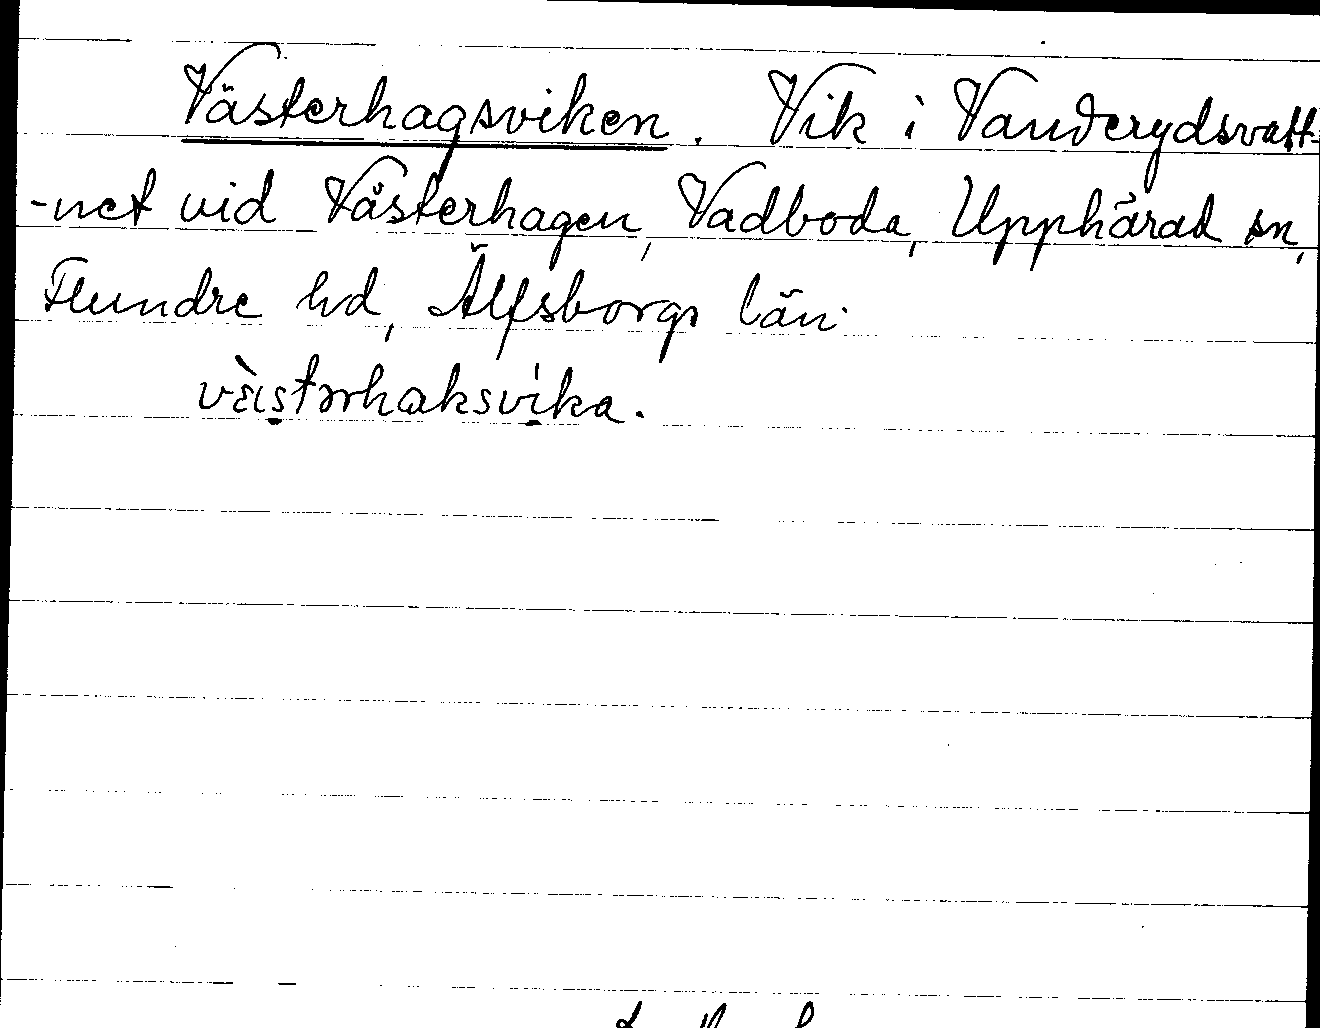 Västerhagsviken. Vik i Vanderydsvatt-
-net vid Västerhagen, Vadboda, Upphärad sn,
Flundre hd, Älfsborgs län.